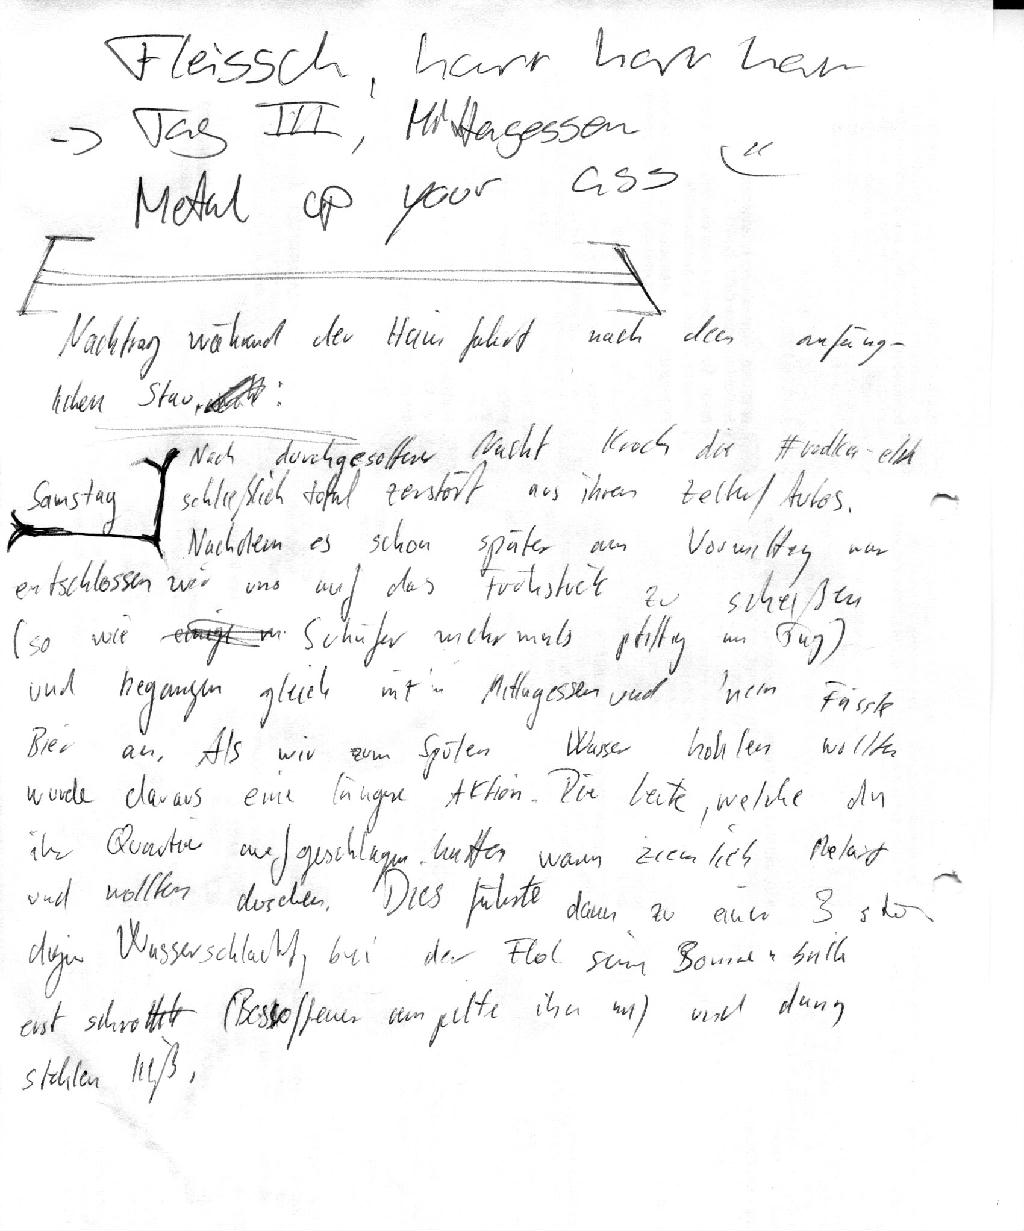 Fleissch, harr harr harr
-> Tag III, Mittagessen
Metal up your ass
Nachtrag während der Heimfahrt nach dem anfäng-
lichen Stau :
Samstag
Nach durchgesoffener Nacht kroch die #vodka-elch
schließlich total zerstört aus ihren Zelten/Autos.
Nachdem es schon später am Vormittag war
entschlossen wir uns auf das Frühstück zu scheißen
(so wie Schäfer mehrmals am Tag)
und begangen gleich mit'm Mittagessen und 'nem Fässle
Bier an. Als wir zum Spülen Wasser hohlen wollten
wurde daraus eine längere Aktion. Die Leute, welche da
ihr Quartier aufgeschlagen hatten waren ziemlich relaxt
und wollten duschen. Dies führte dann zu einer 3 stün
digen Wasserschlacht, bei der Flol seine Sonnenbrille
erst schrottet (Besoffener rempelte ihn um) und dann
stehlen ließ.